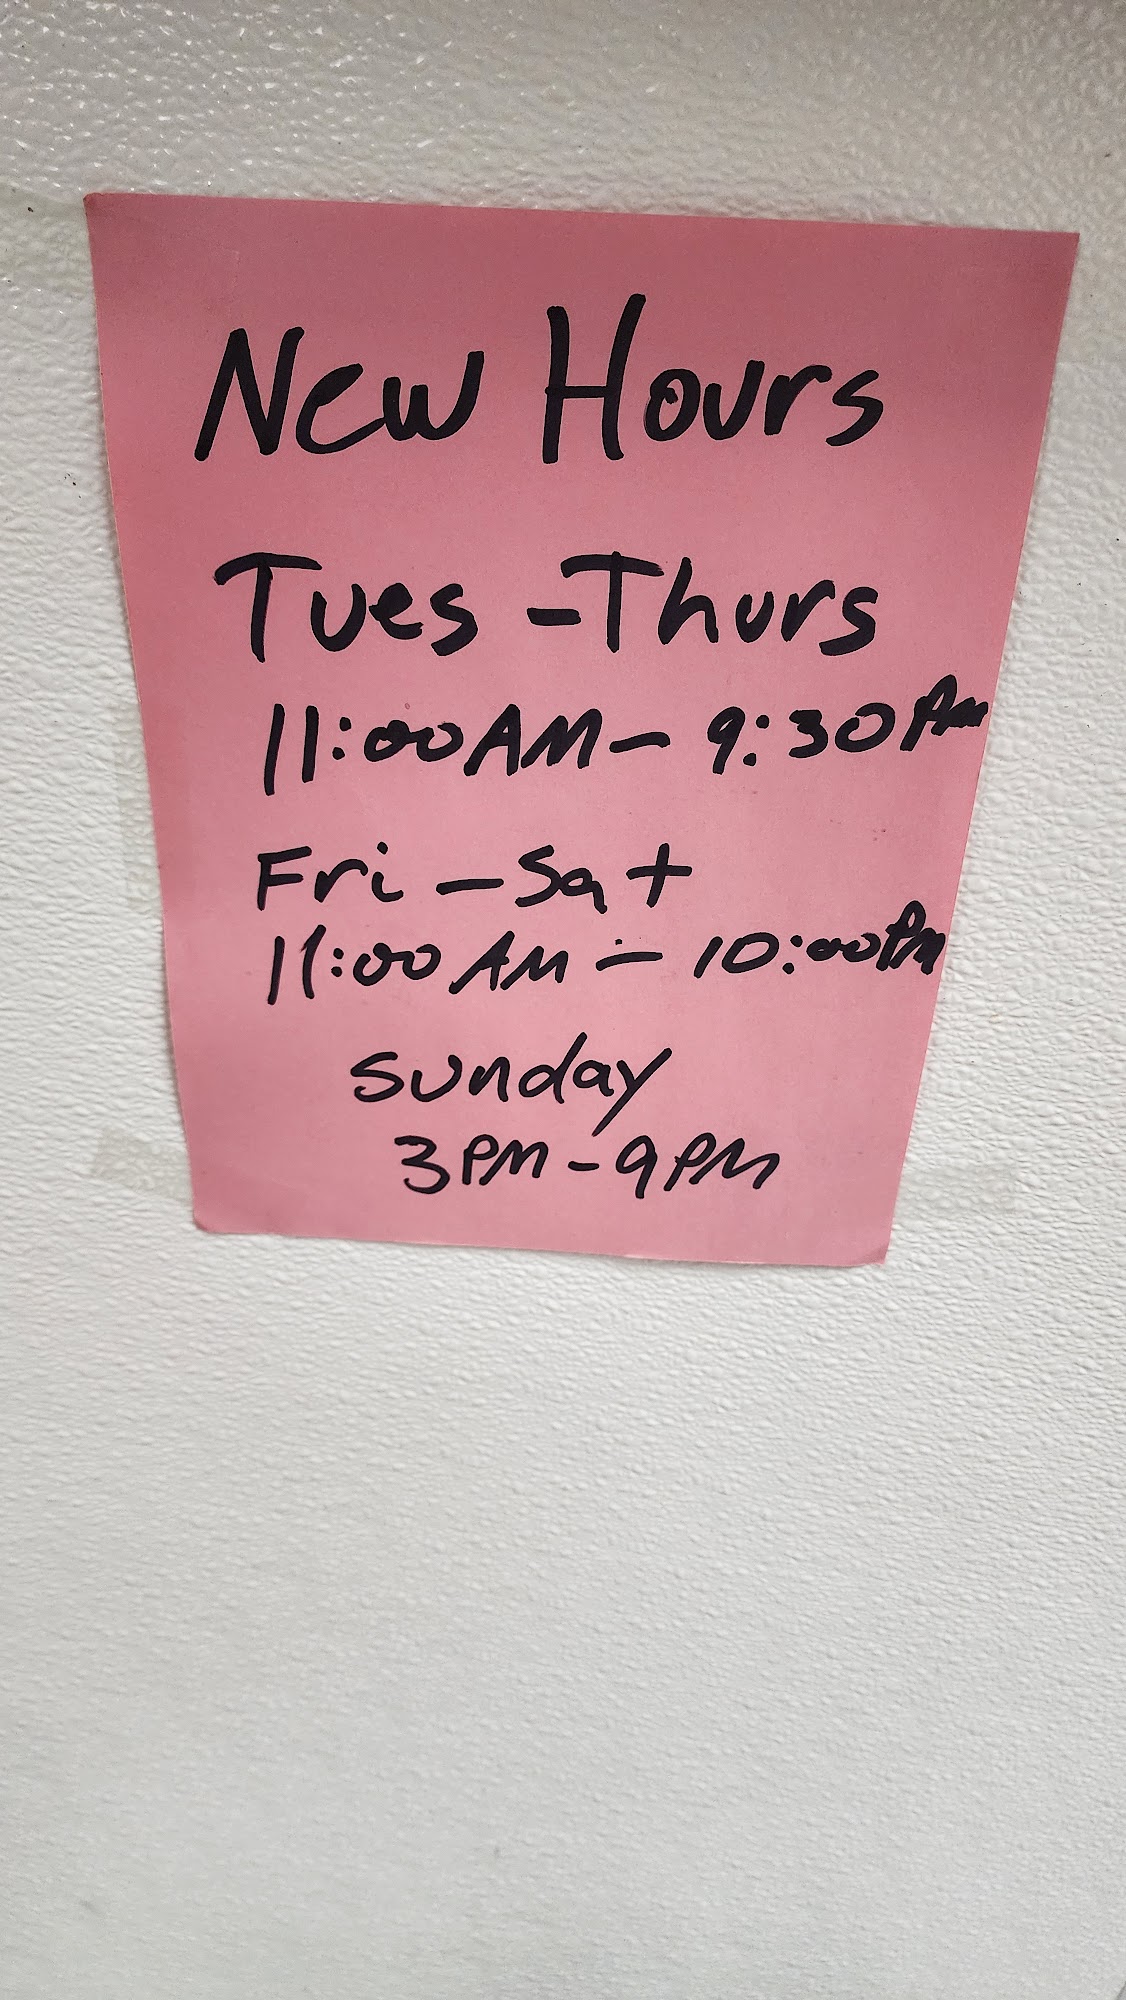 New Hours
Tues - Thurs
11:00AM - 9:30PM
Fri - Sat
11:00AM - 10:00PM
Sunday
3PM - 9PM